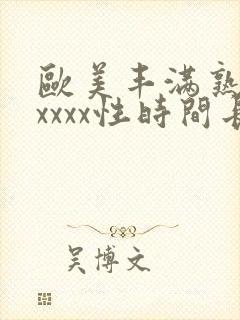 歐美丰滿熟
xxxx性時間長
吴博文